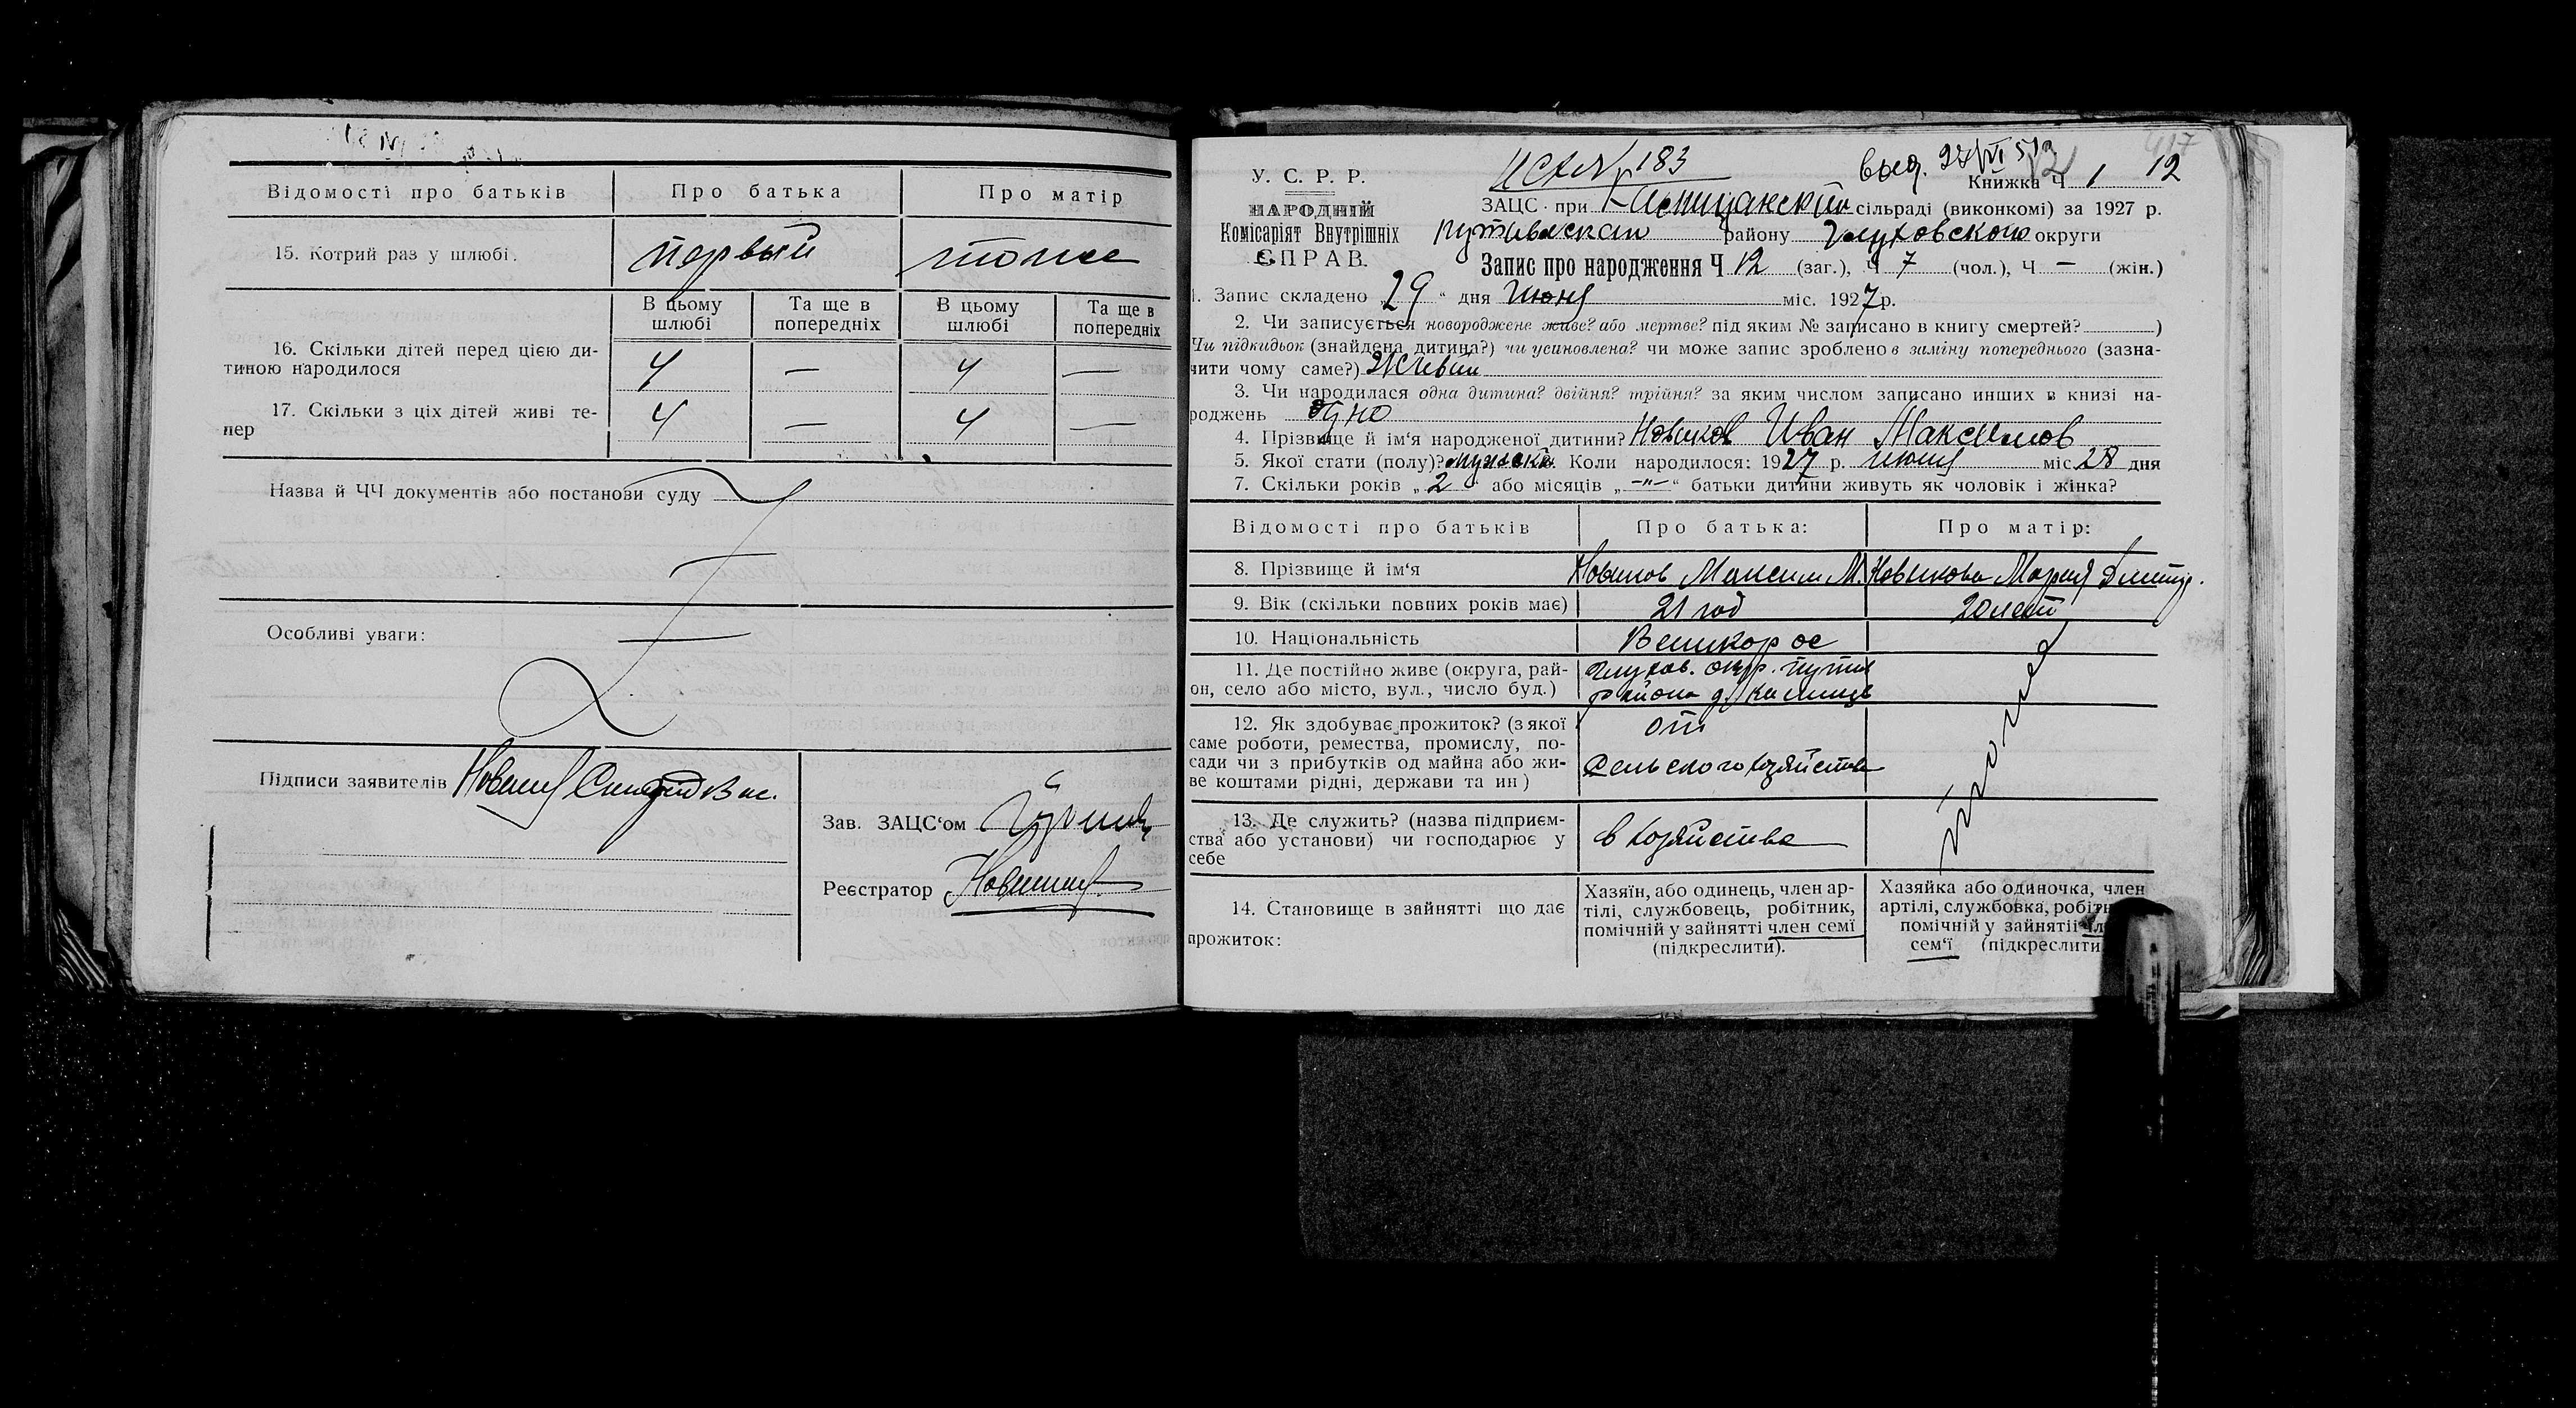 Відомості про батьків Про батька Про матір
15. Котрий раз у шлюбі. первый тоже
В цьому шлюбі Та ще в попередніх В цьому шлюбі Та ще в попередніх
16. Скільки дітей перед цією ди-
тиною народилося 4 — 4 —
17. Скільки з ціх дітей живі те-
пер 4 — 4 —
Назва й ЧЧ документів або постанови суду
Особливі уваги:
Підписи заявителів
Зав. ЗАЦС‘ом
Реєстратор
У. С. Р. Р.
НАРОДНІЙ
Комісаріят Внутрішніх
СПРАВ.
183
выд. 27/VI
Книжка Ч 1 12
ЗАЦС при сільраді (виконкомі) за 1927 р.
району Глуховского округи
Запис про народження Ч 12 (заг.), Ч 7 (чол.), Ч — (жін.)
1. Запис складено „29“ дня Июня міс. 1927 р.
2. Чи записується новороджене живе? або мертве? під яким № записано в книгу смертей? )
Чи підкидьок (знайдена дитина?) чи усиновлена? чи може запис зроблено в заміну попереднього (зазна-
чити чому саме?) Живым
3. Чи народилася одна дитина? двійня? трійня? за яким числом записано инших в книзі на-
роджень одно
4. Прізвище й ім‘я народженої дитини? Новиков Иван Максимов
5. Якої стати (полу)? мужск. Коли народилося: 1927 р. июня міс. 28 дня
7. Скільки років „2“ або місяців „—"—“ батьки дитини живуть як чоловік і жінка?
Відомості про батьків Про батька: Про матір:
8. Прізвище й ім‘я Новиков Максим М. Новикова Мария Дмитр.
9. Вік (скільки повних років має) 21 год 20 лет
10. Національність Великорос
11. Де постійно живе (округа, рай- Глухов. окр. Путив
он, село або місто, вул., число буд.) района д.
12. Як здобуває прожиток? (з якої от
саме роботи, ремества, промислу, по-
сади чи з прибутків од майна або жи- Сельского хозяйства
ве коштами рідні, держави та ин)
тоже
13. Де служить? (назва підприєм-
ства або установи) чи господарює у в хозяйстве
себе
14. Становище в зайнятті що дає
прожиток:
Хазяїн, або одинець, член ар-
тілі, службовець, робітник,
помічній у зайнятті член семї
(підкреслити).
Хазяйка або одиночка, член
артілі, службовка, робітн
помічній у зайнятіі чл
сем‘ї (підкреслити